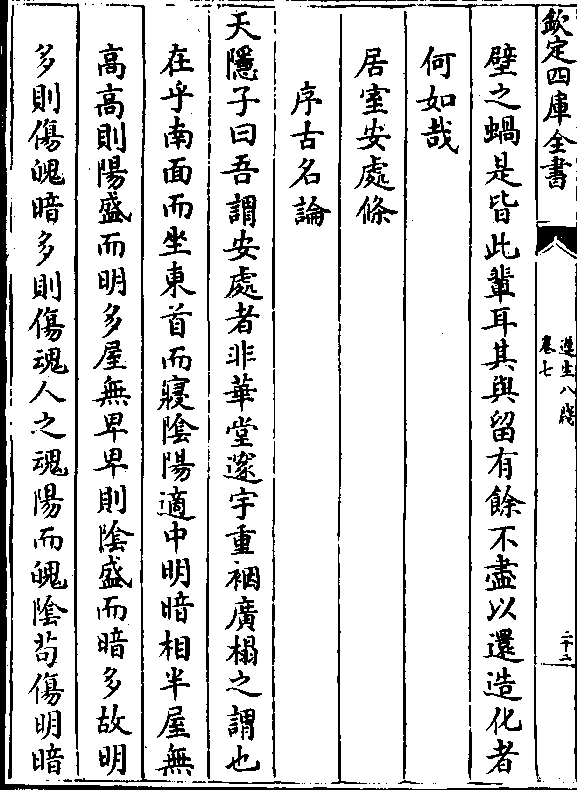 欽定四庫全書
遵生八牋
卷七
二十二
壁之蝸是皆此輩耳其與留有餘不盡以還造化者
何如哉
居室安處條
序古名論
天隱子曰吾謂安處者非華堂邃宇重裀廣榻之謂也
在乎南面而坐東首而寢陰陽適中明暗相半屋無
高高則陽盛而明多屋無卑卑則陰盛而暗多故明
多則傷魄暗多則傷魂人之魂陽而魄陰茍傷明暗